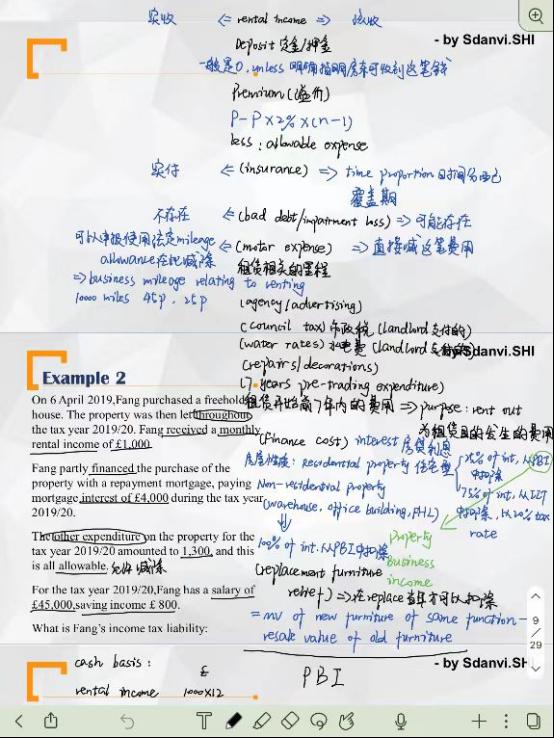 实收 <= rental income => 应收
Deposit 定金/押金
- by Sdanvi.SHI
一般是0, unless 明确指明房东可收到这笔钱
Premium (溢价)
P-P×2%×(n-1)
less : allowable expense
实付 <= (insurance) => time proportion 时间分配
覆盖期
不存在 <= (bad debt/impairment loss) => 可能存在
可以申报使用法定mileage allowance在此减除 <= (motor expense) => 直接减这笔费用
租赁相关的里程
=> business mileage relating to renting
10000 miles 45p, 25p
(agency/advertising)
(council tax) 市政税 (landlord 支付的)
(water rates) 水电费 (landlord 支付的)
(repairs/decorations)
(7-years pre-trading expenditure)
租赁开始前7年内的费用 => purpose: rent out
为租赁目的发生的费用
Example 2
On 6 April 2019,Fang purchased a freehold
house. The property was then let throughout
the tax year 2019/20. Fang received a monthly
rental income of £1,000.
(finance cost) interest 房贷利息
房屋性质: residential property 住宅型
25% of int, 从PBI
中扣除
75% of int, 从ILT
中扣除, 以20% tax
rate
Fang partly financed the purchase of the
property with a repayment mortgage, paying
mortgage interest of £4,000 during the tax year
2019/20.
Non-residential property
(warehouse, office building, FHL)
100% of int. 从PBI中扣除
property
business
income
The other expenditure on the property for the
tax year 2019/20 amounted to 1,300, and this
is all allowable. 允许减除
(replacement furniture
relief) => 在replace当年才可以扣除
= mv of new furniture of same function -
resale value of old furniture
For the tax year 2019/20,Fang has a salary of
£45,000,saving income £ 800.
What is Fang's income tax liability:
9
29
cash basis :
£
PBI
- by Sdanvi.SH
rental income 1000×12